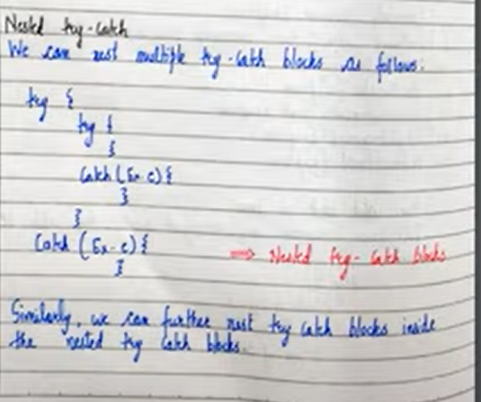 Nested try-catch
We can nest multiple try-catch blocks as follows:
try {
try {
}
catch (Ex c) {
}
}
catch (Ex c) {
}
⇒ Nested try-catch blocks
Similarly, we can further nest try catch blocks inside
the nested try catch blocks.